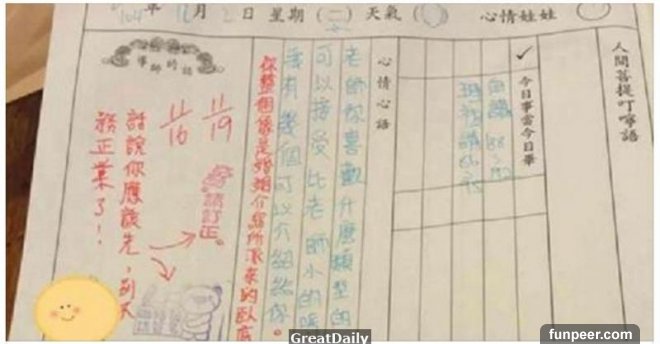 104年12月2日星期(二)天氣( )
心情娃娃
人間菩提叮嚀語
✓今日事當今日畢
心情心語
老師你喜歡什麼類型的
可以接受比老師小的嗎
我有幾個可以介紹給你
你整個像是婚姻介紹所派來的臥底。
導師的話
11/19
11/16
請訂正。
話說你應該先,
務正業了!
GreatDaily
funpeer.com